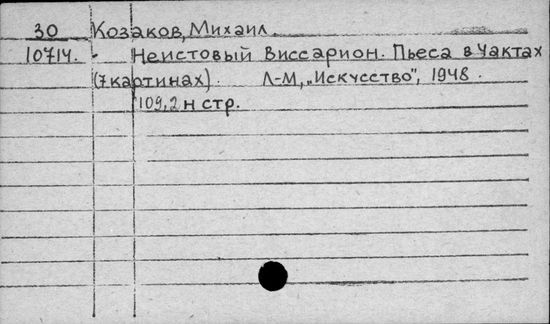 30 Козаков, Михаил.
10714. Неистовый Виссарион. Пьеса в 4актах
(7 картинах). Л-М, „Искусство", 1948.
109, 2 н стр.